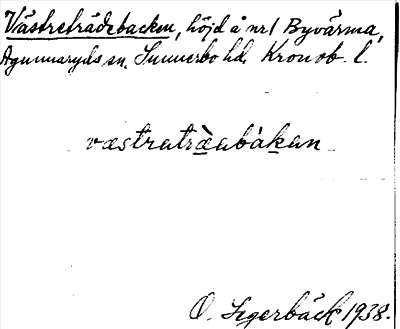 Västreträdebacken, höjd å nr1 Byvärma,
Agunnaryds sn. Sunnerbo hd. Kronob. l.
væstratræ̀abákan
O. Segerbäck 1938.